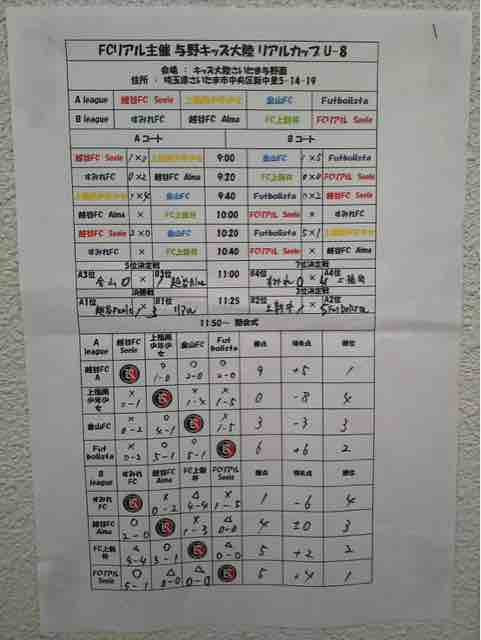 1
FCリアル主催 与野キッズ大陸 リアルカップ U-8
会場 : キッズ大陸さいたま与野園
住所 : 埼玉県さいたま市中央区新中里5-14-19
A league 越谷FC Seele 上福岡少年少女 金山FC Futbolista
B league すみれFC 越谷FC Alma FC上新井 FCリアル Seele
Aコート Bコート
越谷FC Seele 1×0 上福岡少年少女 9:00 金山FC 1×5 Futbolista
すみれFC 0×2 越谷FC Alma 9:20 FC上新井 0×0 FCリアル Seele
上福岡少年少女 1×4 金山FC 9:40 Futbolista 0×2 越谷FC Seele
越谷FC Alma × FC上新井 10:00 FCリアル Seele × すみれFC
越谷FC Seele 2×0 金山FC 10:20 Futbolista 5×1 上福岡少年少女
すみれFC × FC上新井 10:40 FCリアル Seele × 越谷FC Alma
5位決定戦 7位決定戦
A3位 金山 0 × 1 B3位 越谷Alma 11:00 B4位 すみれ 0 × 4 A4位 上福岡
決勝戦 3位決定戦
A1位 越谷Seele 1 × 3 B1位 リアル 11:25 B2位 上新井 1 × 5 A2位 Futbolista
11:50~ 閉会式
A league 越谷FC Seele 上福岡少年少女 金山FC Futbolista 勝点 得失点 順位
越谷FC A ○ 1-0 ○ 2-0 ○ 2-0 9 +5 1
上福岡少年少女 × 0-1 × 1-4 × 1-5 0 -8 4
金山FC × 0-2 ○ 4-1 × 1-5 3 -3 3
Futbolista × 0-2 ○ 5-1 ○ 5-1 6 +6 2
B league すみれFC 越谷FC Alma FC上新井 FCリアル Seele 勝点 得失点 順位
すみれFC × 0-2 △ 4-4 × 1-5 1 -6 4
越谷FC Alma ○ 2-0 × 1-3 △ 0-0 4 ±0 3
FC上新井 △ 4-4 ○ 3-1 △ 0-0 5 +2 2
FCリアル Seele ○ 5-1 △ 0-0 △ 0-0 5 +4 1